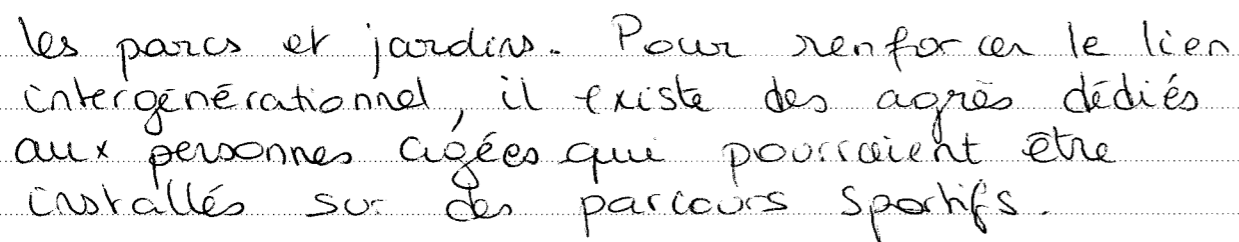 les parcs et jardins. Pour renforcer le lien
intergénérationnel, il existe des agrès dédiés
aux personnes agées qui pourraient être
installés sur des parcours sportifs.